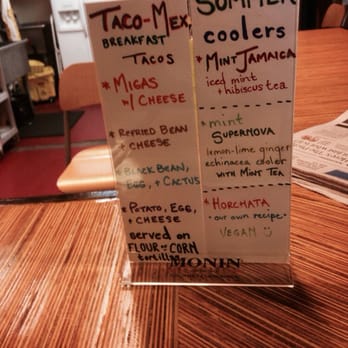 TACO-MEX
BREAKFAST
TACOS
* MIGAS
w/ CHEESE
* REFRIED BEAN
+ CHEESE
* BLACK BEAN,
EGG, + CACTUS
* POTATO, EGG,
+ CHEESE
served on
FLOUR or CORN
tortillas
SUMMER
coolers
* MINT JAMAICA
iced mint
+ hibiscus tea
* mint
SUPERNOVA
lemon-lime ginger
echinacea cooler
WITH MINT TEA
* HORCHATA
• our own recipe •
VEGAN
MONIN